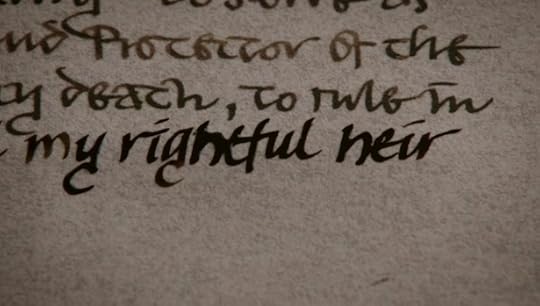 and Protector of the
my death, to rule in
my rightful heir